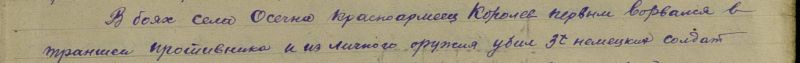 В боях села Осечна красноармеец Королев первым ворвался в
траншеи противника и из личного оружия убил 3х немецких солдат